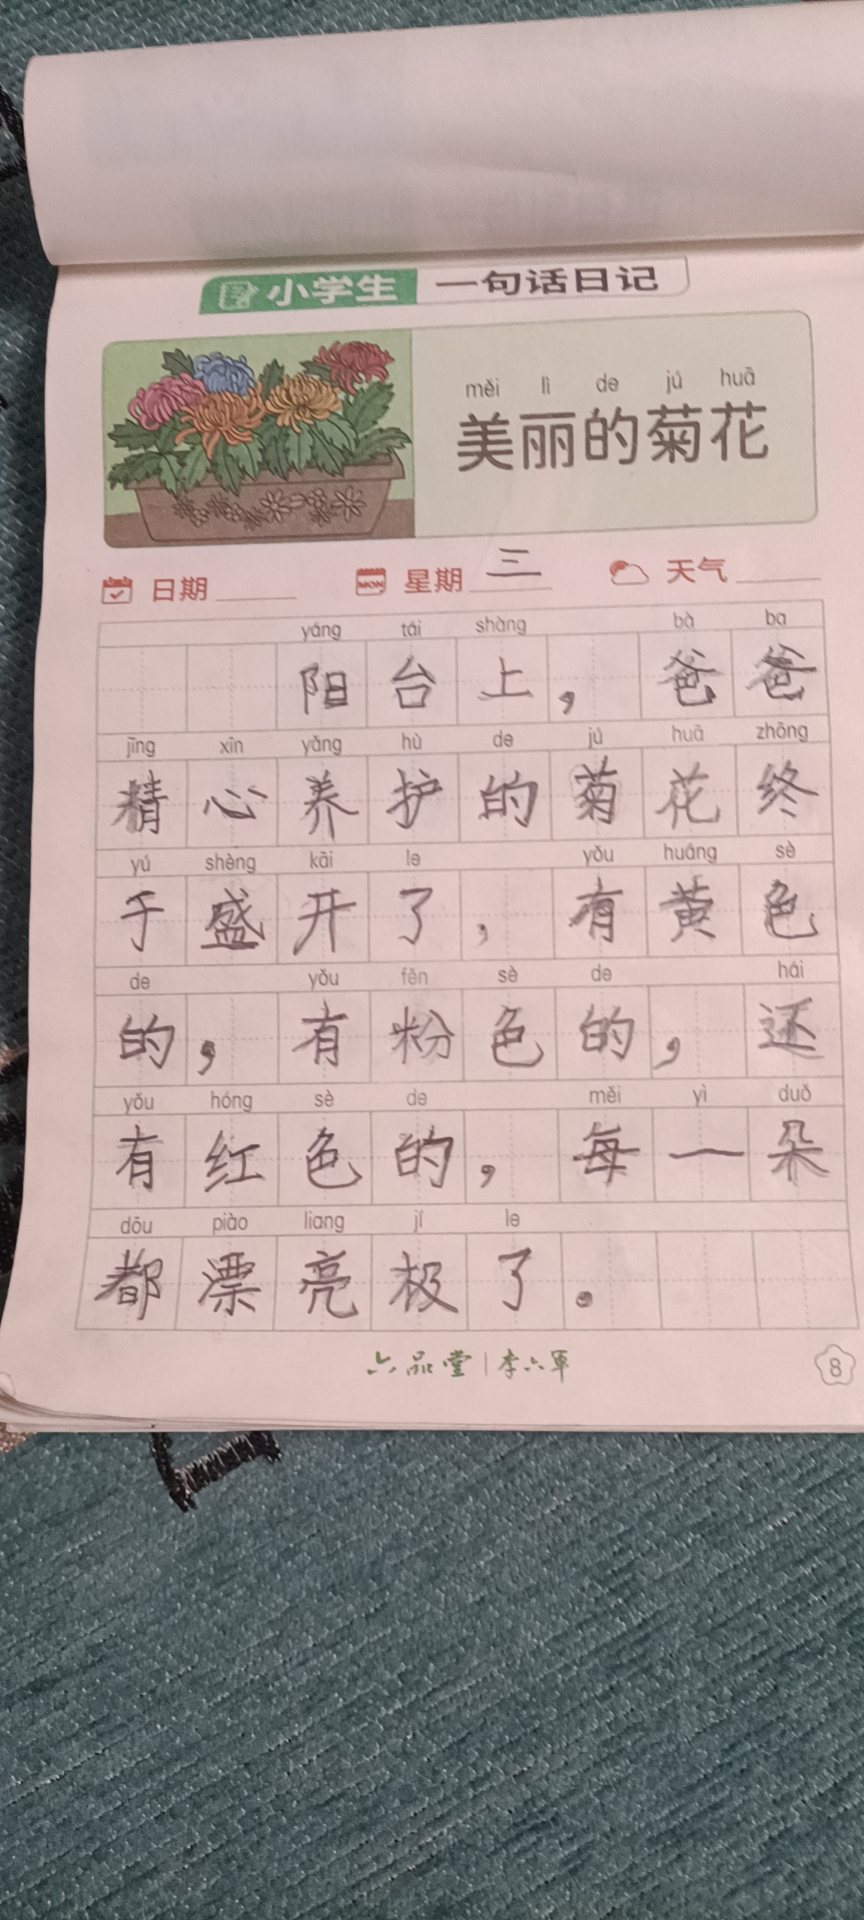 小学生 一句话日记
měi lì de jú huā
美丽的菊花
MON
日期 星期 三 天气
yáng tái shàng bà ba
阳台上，爸爸
jīng xīn yǎng hù de jú huā zhōng
精心养护的菊花终
yú shèng kāi le yǒu huáng sè
于盛开了，有黄色
de yǒu fěn sè de hái
的，有粉色的，还
yǒu hóng sè de měi yì duǒ
有红色的，每一朵
dōu piào liang jí le
都漂亮极了。
六品堂|李六军
8